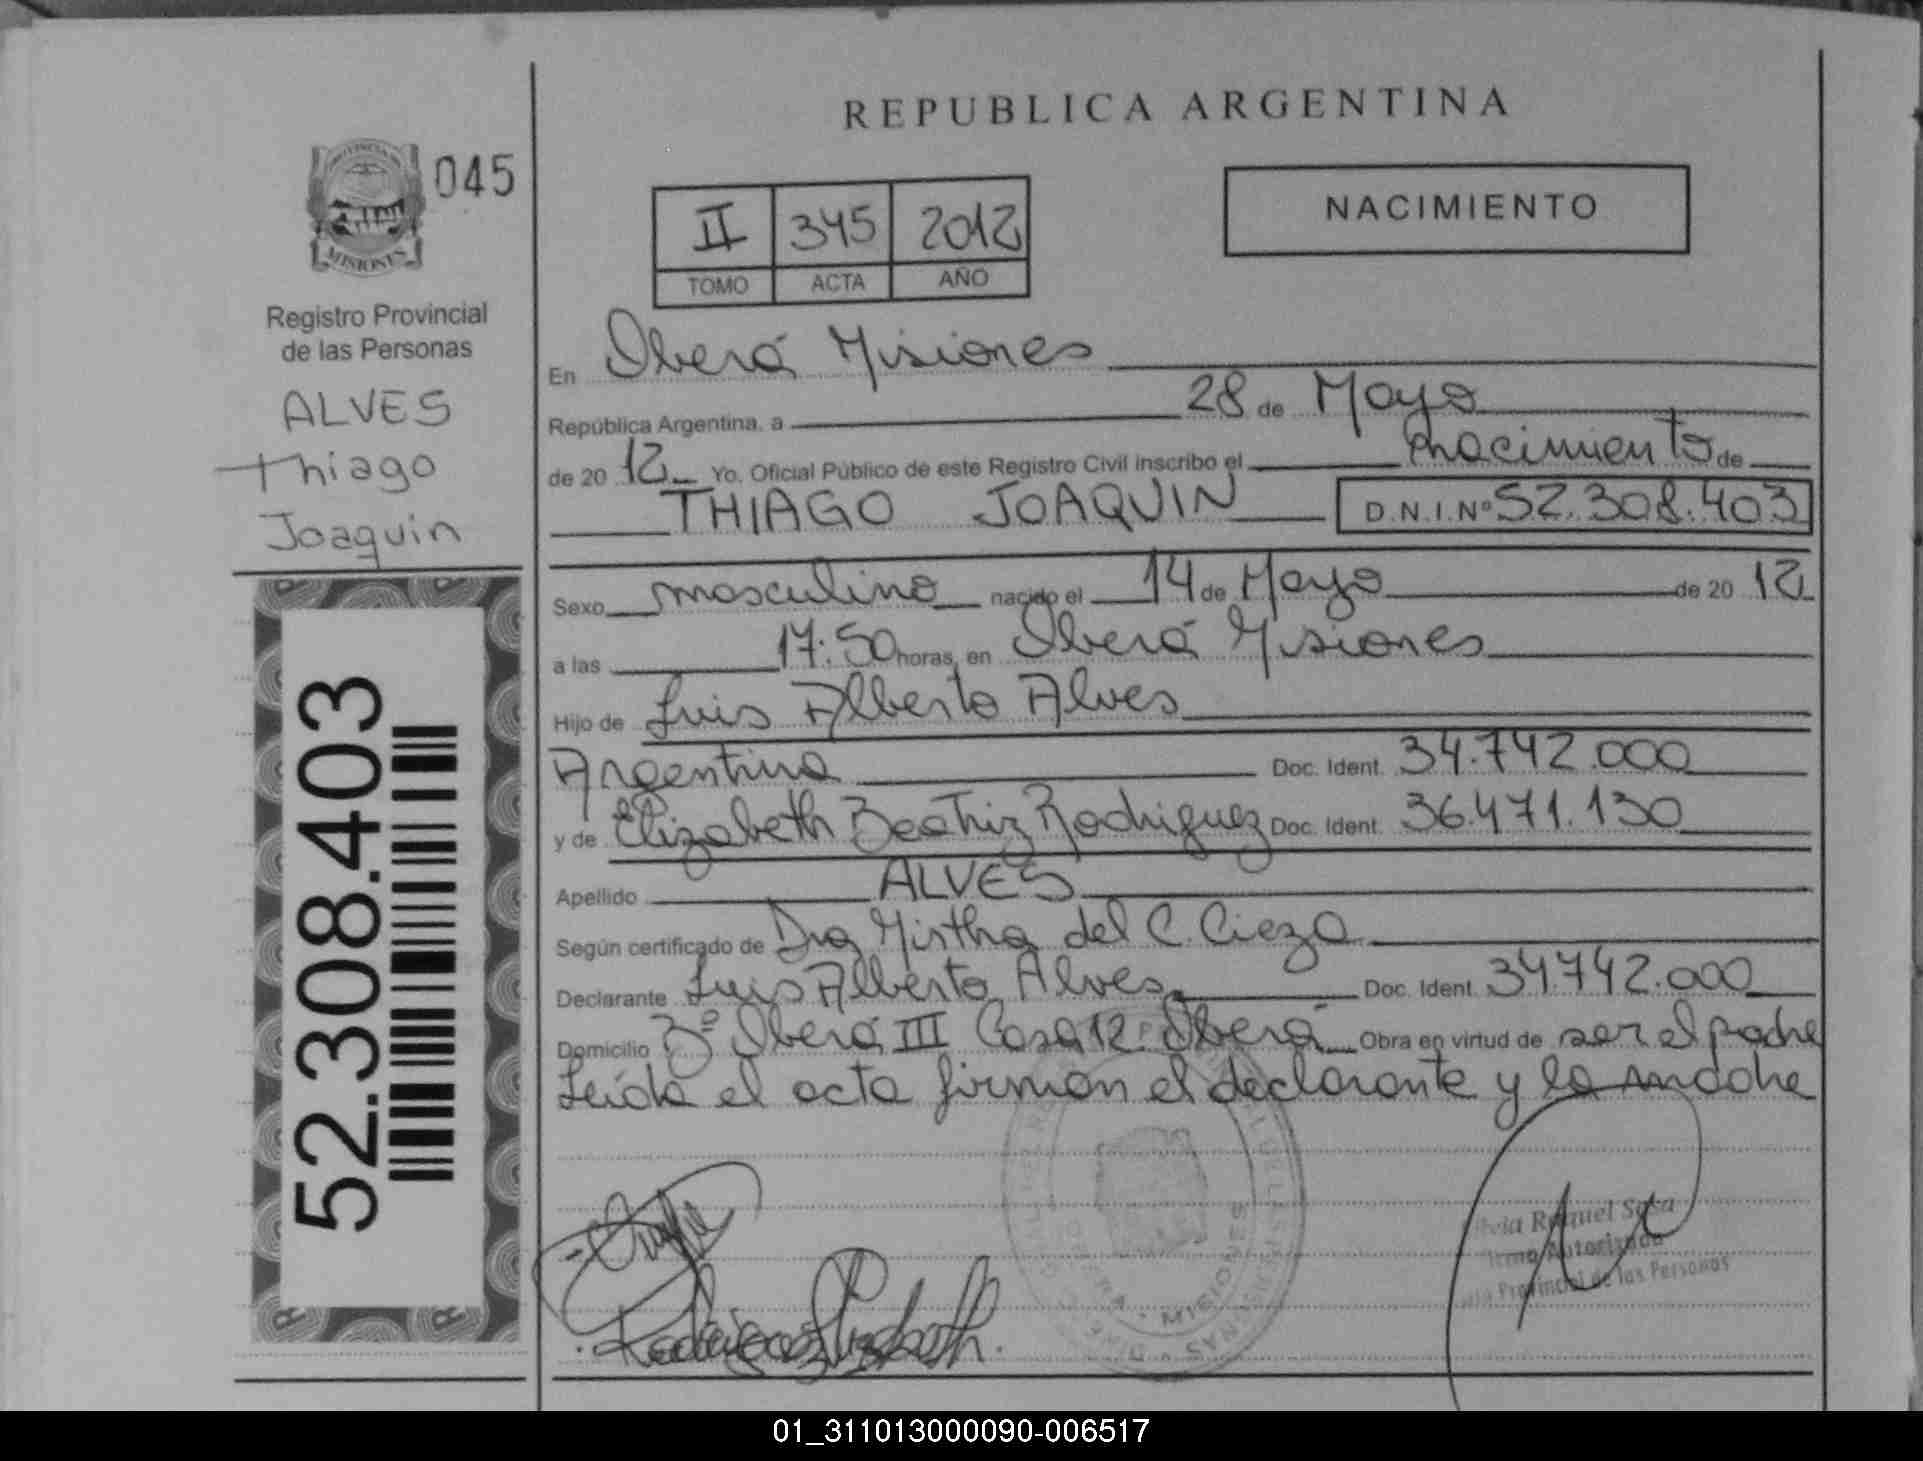 REPUBLICA ARGENTINA
PROVINCIA DE
MISIONES
045
Registro Provincial
de las Personas
ALVES
Thiago
Joaquin
52.308.403
II 345 2012
TOMO ACTA AÑO
NACIMIENTO
En Oberá Misiones
República Argentina, a 28 de Mayo
de 20 12 Yo, Oficial Público de este Registro Civil inscribo el nacimiento de
THIAGO JOAQUIN D.N.I.Nº 52.308.403
Sexo masculino nacido el 14 de Mayo de 20 12
a las 17:50 horas, en Oberá Misiones
Hijo de Luis Alberto Alves
Argentina Doc. Ident. 34.742.000
y de Elizabeth Beatriz Rodriguez Doc. Ident. 36.471.130
Apellido ALVES
Según certificado de Dra Mirtha del C. Cieza
Declarante Luis Alberto Alves Doc. Ident. 34.742.000
Domicilio Bº Oberá III Casa 12. Oberá Obra en virtud de ser el padre
Leída el acta firman el declarante y la madre
Rodriguez Elizabeth.
MISIONES
Raquel Sosa
Firma Autorizada
Provincial de las Personas
01_311013000090-006517